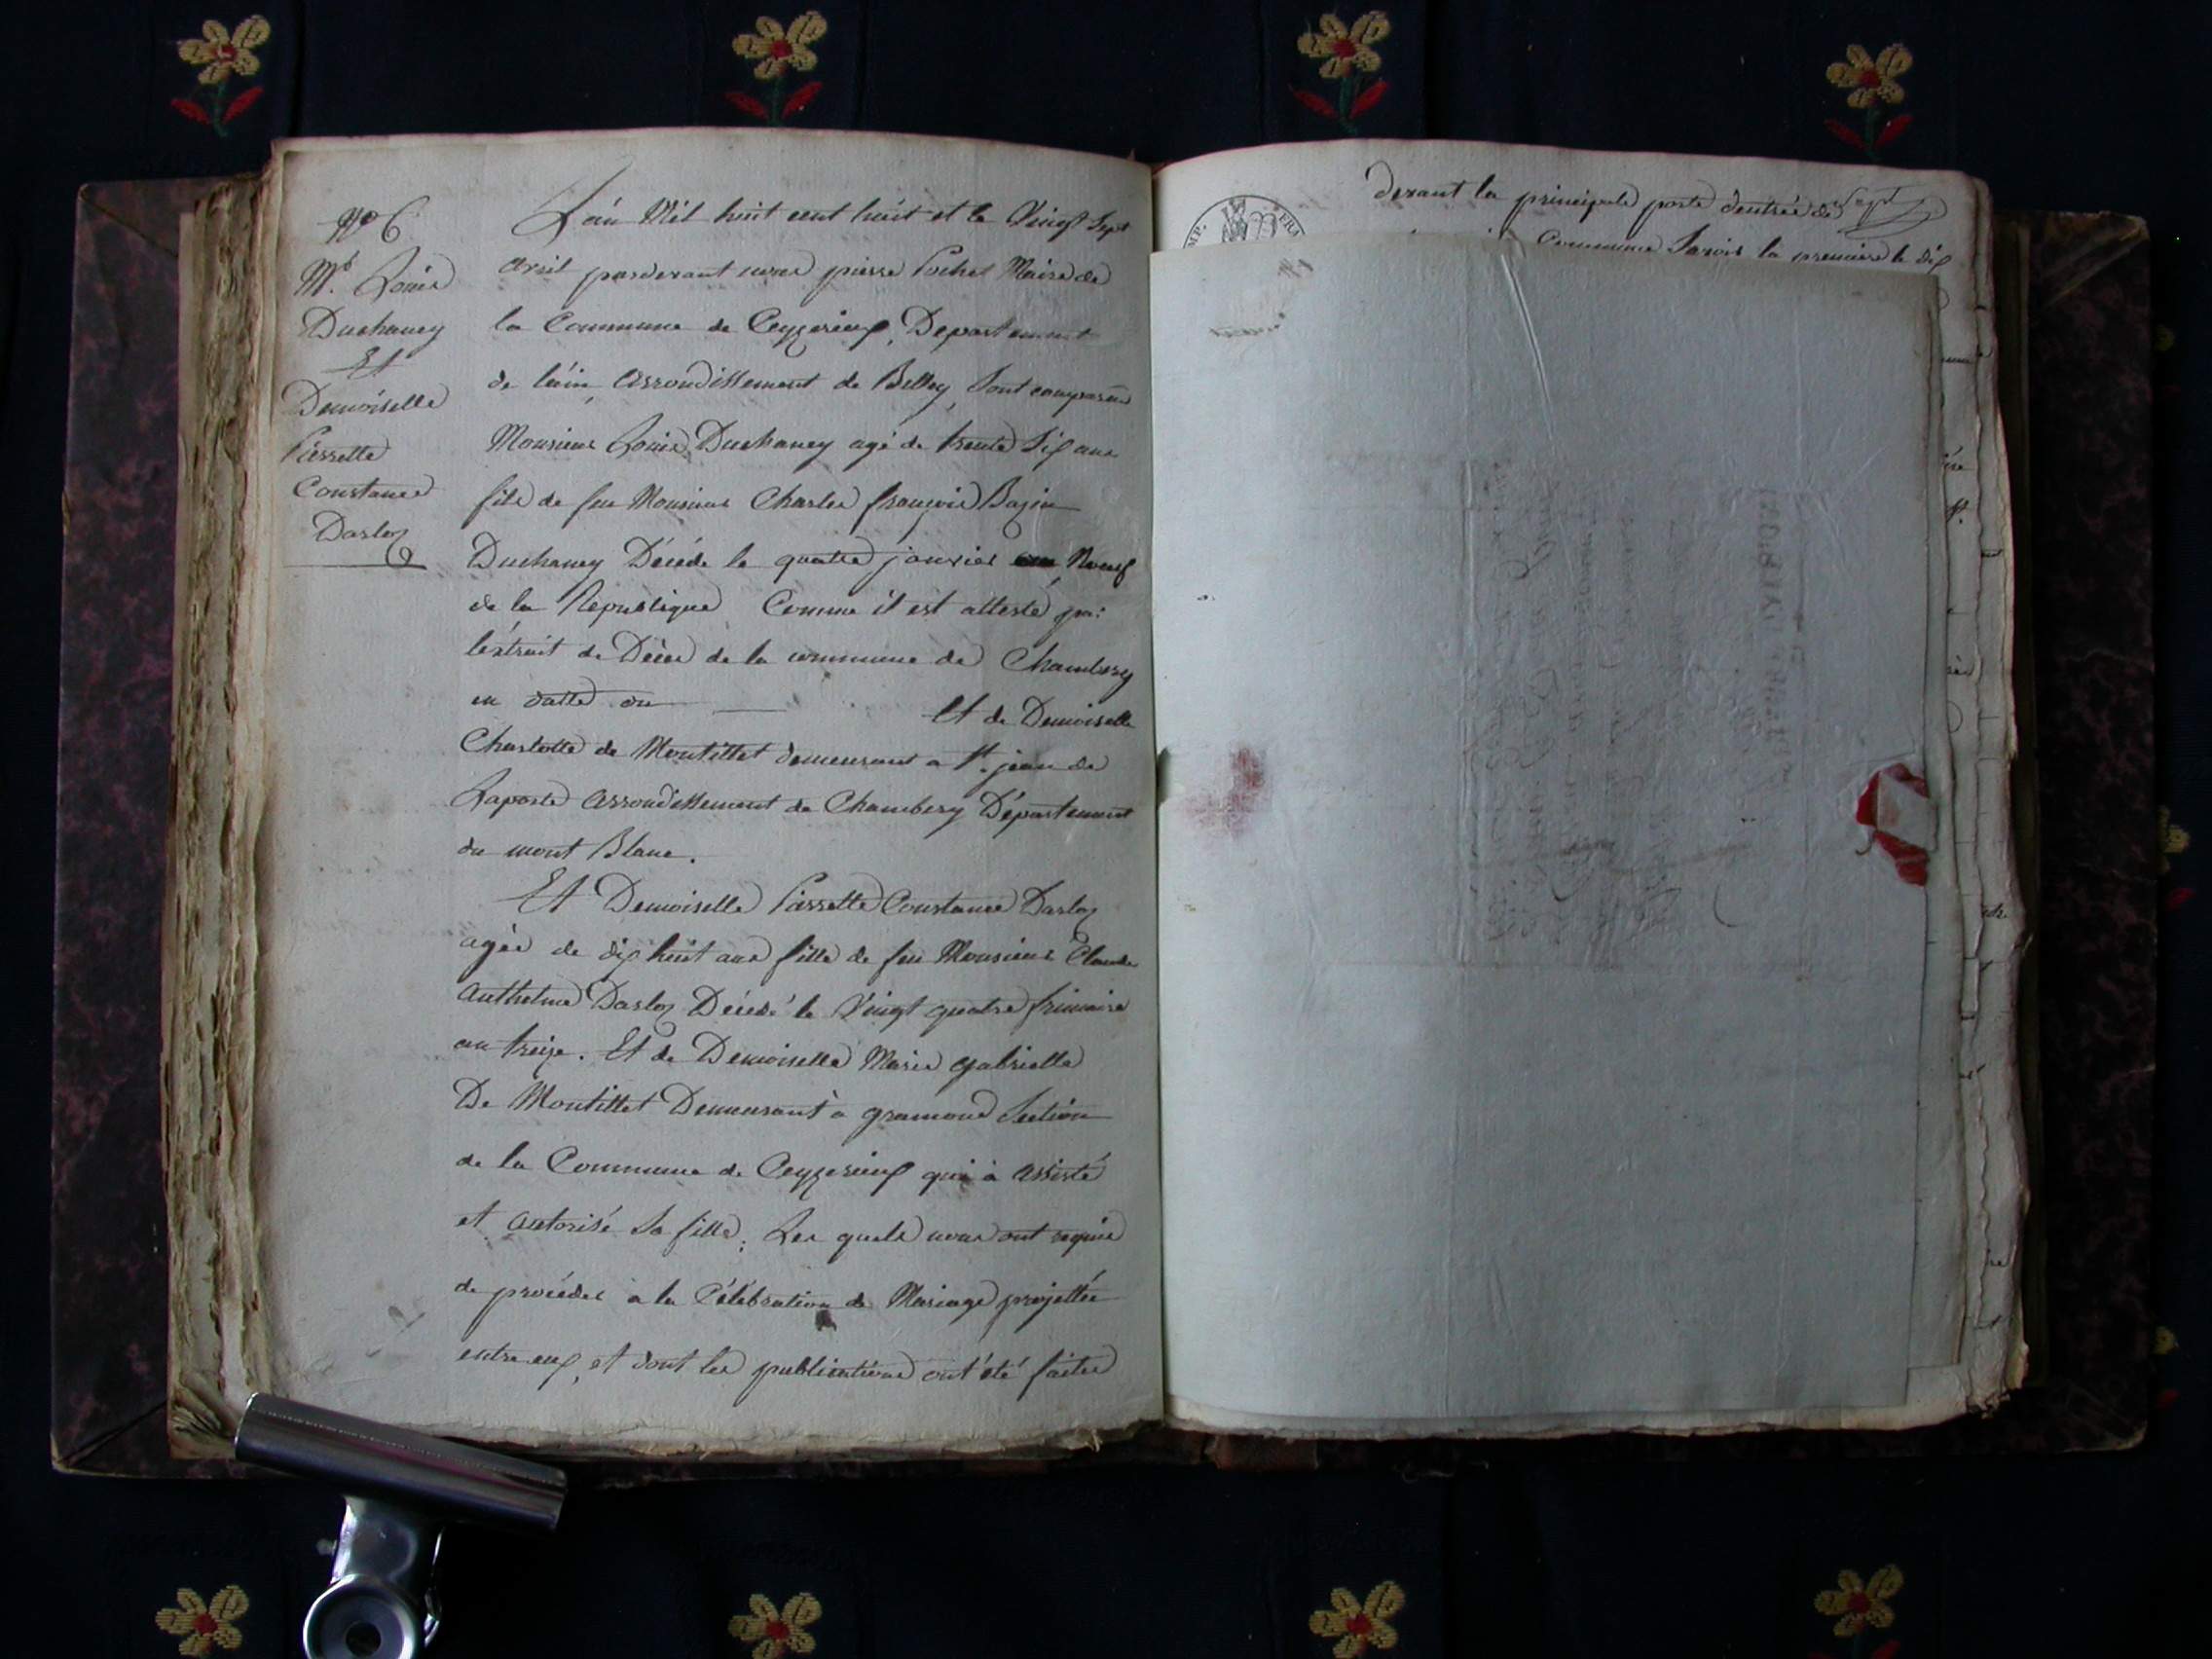 N° 6
Mr. Louis
Duchaney
Et
Demoiselle
Pierrette
Constance
Darloz
L'an Mil huit cent huit et le Vingt Sept
avril pardevant nous pierre Pochet Maire de
la Commune de Ceyzerieux, Departement
de l'ain, arrondissement de Belley, Sont comparu
Monsieur Louis Duchaney agé de trente Six ans
fils de feu Monsieur Charles françois Bazin
Duchaney Décédé le quatre janvier an Neuf
de la Republique Comme il est attesté par
l'extrait de Décès de la commune de Chambery
en datte du — Et de Demoiselle
Charlotte de Montillet demeurant a St. jean de
Laporte arrondissement de Chambery Département
du mont Blanc.
Et Demoiselle Pierrette Constance Darloz
agée de dix huit ans fille de feu Monsieur Claude
Anthelme Darloz Décédé le Vingt quatre frimaire
an treize. Et de Demoiselle Marie gabrielle
De Montillet Demeurant à gramond Section
de la Commune de Ceyzerieux qui à assisté
et autorisé Sa fille; Les quels nous ont requis
de procéder à la Célébration de Mariage projettée
entre eux, et dont les publications ont été faites
devant la principale porte d'entrée de
Commune Savoir la premiere le dix